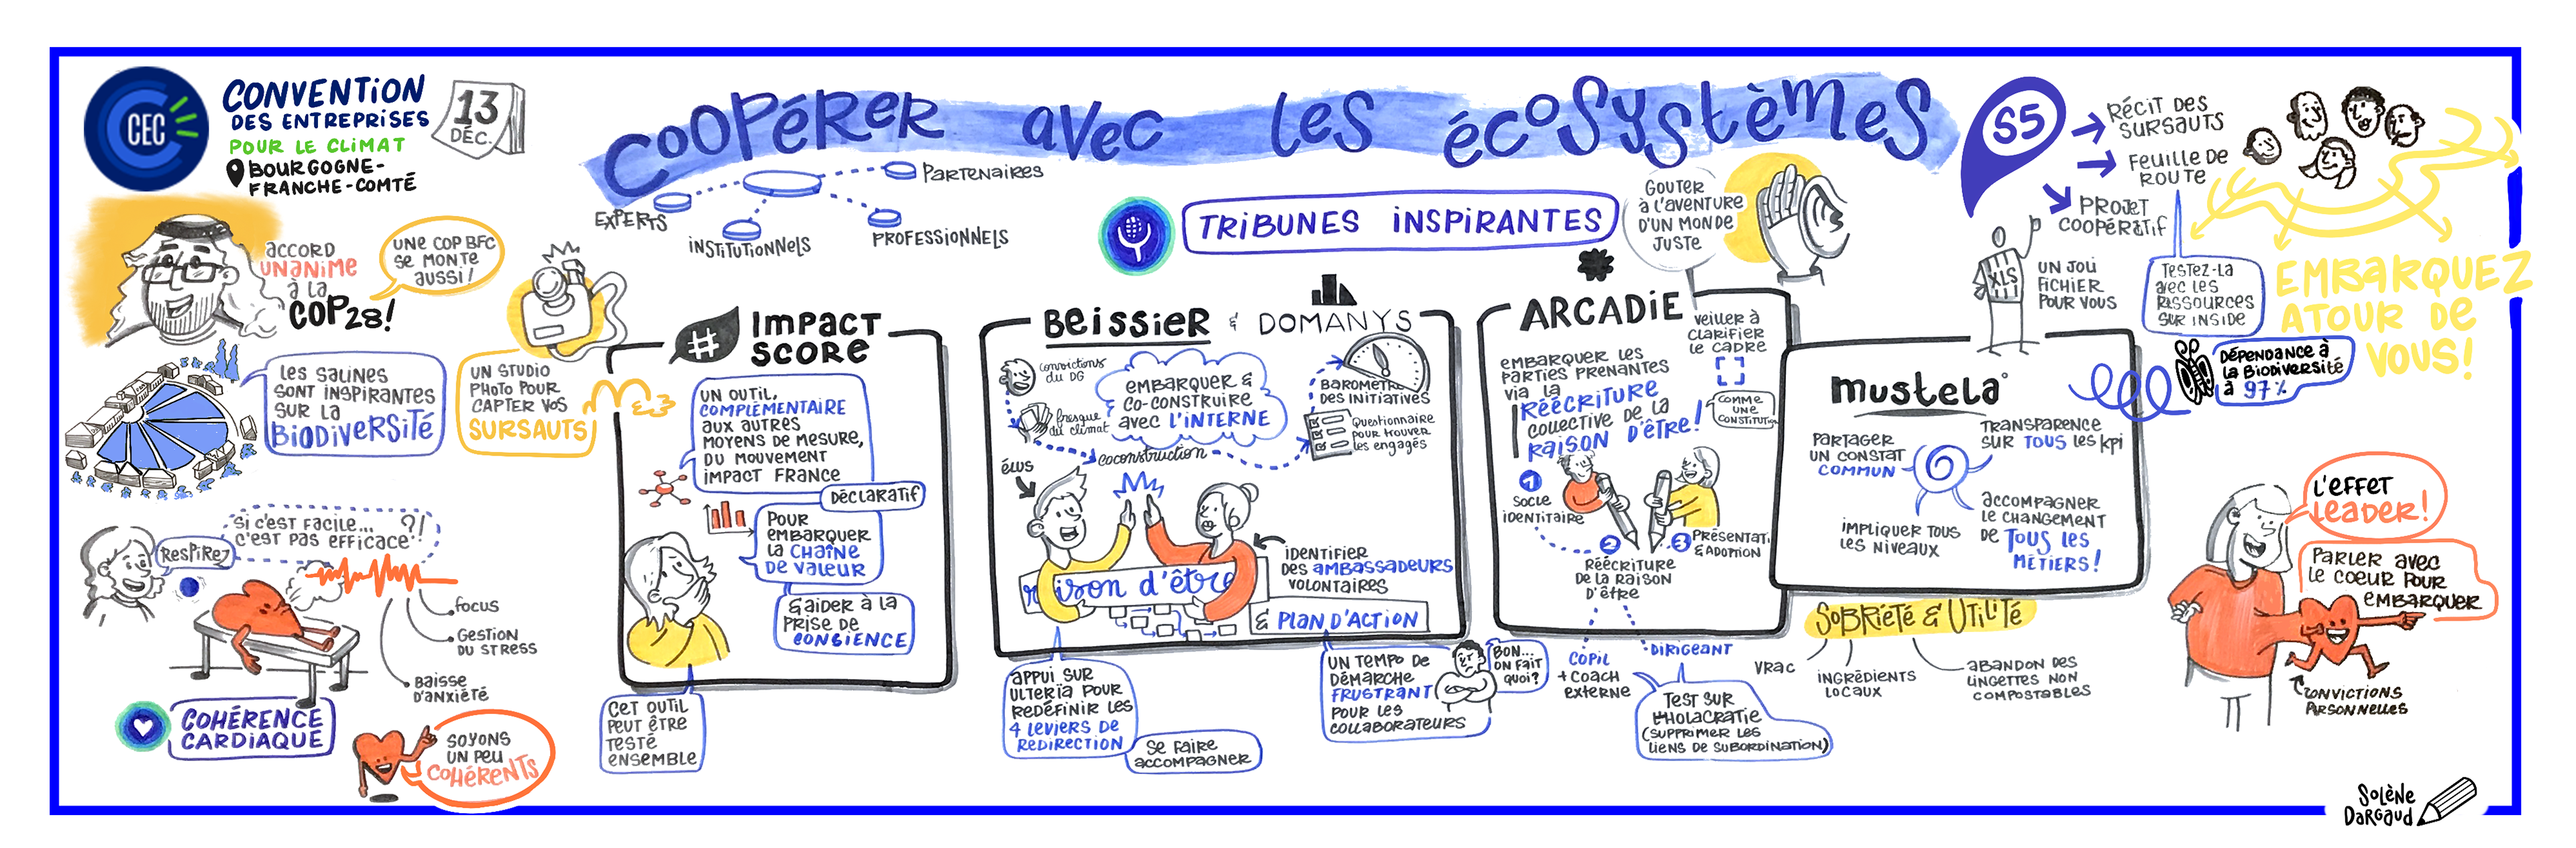 CEC
CONVENTION
DES ENTREPRISES
POUR LE CLIMAT
BOURGOGNE-
FRANCHE-COMTÉ
13
DÉC.
COOPÉRER avec les écosystèmes
EXPERTS
INSTITUTIONNELS
PARTENAIRES
PROFESSIONNELS
ACCORD
UNANIME
à la
COP28!
UNE COP BFC
SE MONTE
AUSSI!
LES SALINES
SONT INSPIRANTES
SUR LA
BIODIVERSITÉ
UN STUDIO
PHOTO POUR
CAPTER VOS
SURSAUTS
RESPIREZ
Si C'EST FACILE... ?!
C'EST PAS EFFICACE
FOCUS
GESTION
DU STRESS
BAISSE
D'ANXIÉTÉ
COHÉRENCE
CARDIAQUE
SOYONS
UN PEU
COHÉRENTS
# IMPACT
SCORE
UN OUTIL,
COMPLÉMENTAIRE
AUX AUTRES
MOYENS DE MESURE,
DU MOUVEMENT
IMPACT FRANCE
DÉCLARATIF
POUR
EMBARQUER
LA CHAÎNE
DE VALEUR
& AIDER À LA
PRISE DE
CONSIENCE
CET OUTIL
PEUT ÊTRE
TESTÉ
ENSEMBLE
TRIBUNES INSPIRANTES
BEISSIER & DOMANYS
convictions
du DG
fresque
du climat
EMBARQUER &
CO-CONSTRUIRE
avec L'INTERNE
coconstruction
BAROMETRE
DES INITIATIVES
Questionnaire
POUR TROUVER
les engagés
élus
raison d'être
IDENTIFIER
DES AMBASSADEURS
VOLONTAIRES
& PLAN D'ACTION
APPUI SUR
ULTERÏA POUR
REDÉFINIR LES
4 LEVIERS DE
REDIRECTION
SE FAIRE
ACCOMPAGNER
UN TEMPO DE
DÉMARCHE
FRUSTRANT
POUR LES
COLLABORATEURS
BON...
ON FAIT
QUOI?
GOUTER
À L'AVENTURE
D'UN MONDE
JUSTE
ARCADIE
VEILLER À
CLARIFIER
LE CADRE
EMBARQUER LES
PARTIES PRENANTES
VIA LA
RÉÉCRITURE
COLLECTIVE DE LA
RAISON D'ÊTRE!
COMME
UNE
CONSTITUTION
1
SOCLE
IDENTITAIRE
2
RÉÉCRITURE
DE LA RAISON
D'ÊTRE
3
PRÉSENTAT
& ADOPTION
COPIL
+ COACH
EXTERNE
DIRIGEANT
TEST SUR
L'HOLACRATIE
(SUPPRIMER LES
LIENS DE SUBORDINATION)
S5
RÉCIT DES
SURSAUTS
FEUILLE DE
ROUTE
PROJET
COOPÉRATIF
XLS
UN JOLI
FICHIER
POUR VOUS
TESTEZ-LA
AVEC LES
RESSOURCES
SUR INSIDE
EMBARQUEZ
ATOUR DE
VOUS!
DÉPENDANCE À
LA BIODIVERSITÉ
à 97%
mustela
PARTAGER
UN CONSTAT
COMMUN
TRANSPARENCE
SUR TOUS les kpi
IMPLIQUER TOUS
LES NIVEAUX
ACCOMPAGNER
LE CHANGEMENT
DE TOUS LES
MÉTIERS!
SOBRIÉTÉ & UTILITÉ
VRAC
INGRÉDIENTS
LOCAUX
ABANDON DES
LINGETTES NON
COMPOSTABLES
L'EFFET
LEADER!
PARLER AVEC
LE COEUR POUR
EMBARQUER
CONVICTIONS
PARSONNELLES
SOLÈNE
DARGAUD